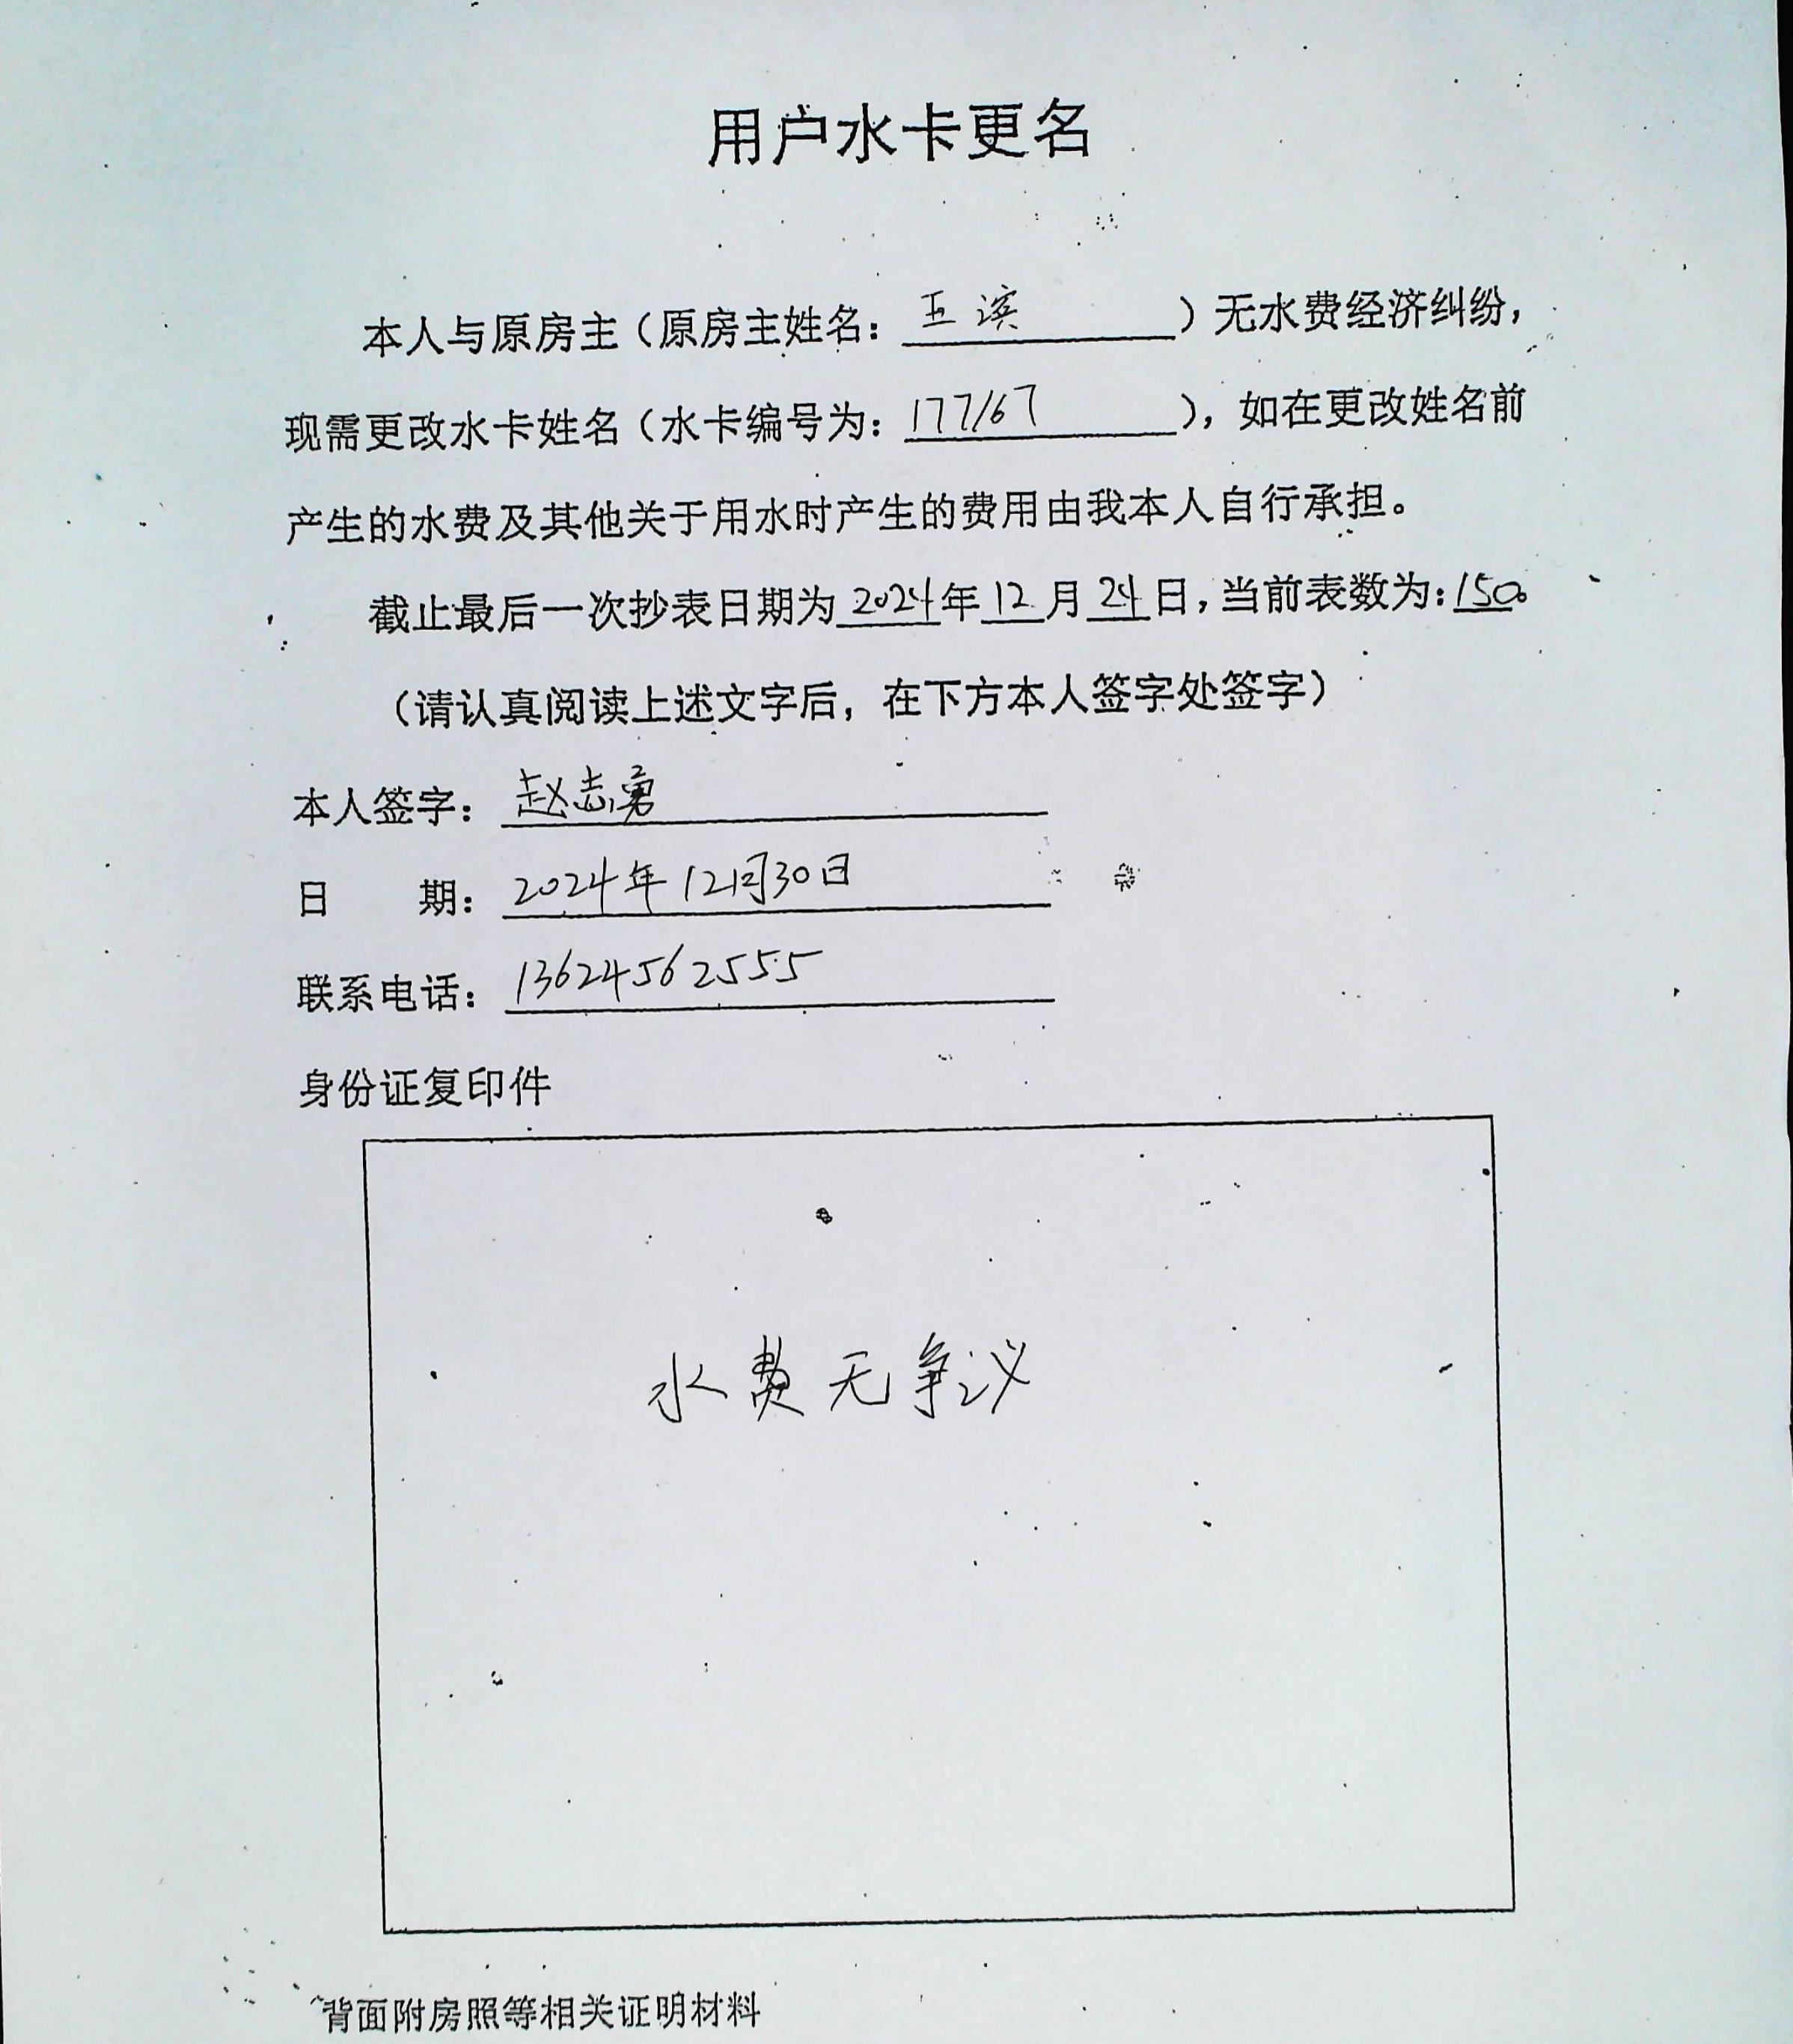 用户水卡更名
本人与原房主（原房主姓名：王滨）无水费经济纠纷，
现需更改水卡姓名（水卡编号为：177167），如在更改姓名前
产生的水费及其他关于用水时产生的费用由我本人自行承担。
截止最后一次抄表日期为2024年12月24日，当前表数为：150。
（请认真阅读上述文字后，在下方本人签字处签字）
本人签字：赵志勇
日　　期：2024年12月30日
联系电话：13624562555
身份证复印件
水费无争议
背面附房照等相关证明材料